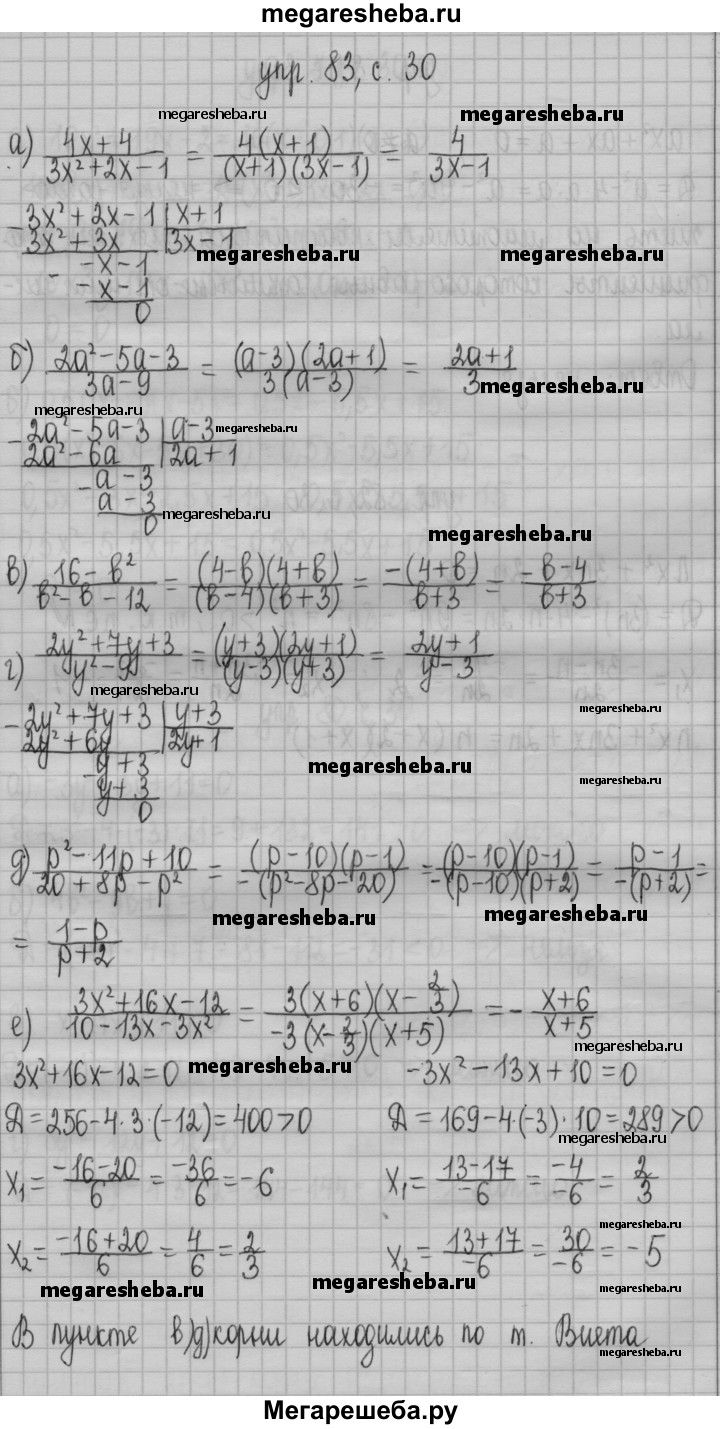 megaresheba.ru
упр. 83, с. 30
megaresheba.ru megaresheba.ru
а) (4x+4)/(3x²+2x−1) = (4(x+1))/((x+1)(3x−1)) = 4/(3x−1)
−3x²+2x−1 | x+1
3x²+3x | 3x−1
megaresheba.ru megaresheba.ru
− −x−1
−x−1
0
б) (2a²−5a−3)/(3a−9) = ((a−3)(2a+1))/(3(a−3)) = (2a+1)/3
megaresheba.ru
megaresheba.ru
−2a²−5a−3 | a−3
megaresheba.ru
2a²−6a | 2a+1
−a−3
a−3
0
megaresheba.ru
megaresheba.ru
в) (16−в²)/(в²−в−12) = ((4−в)(4+в))/((в−4)(в+3)) = (−(4+в))/(в+3) = (−в−4)/(в+3)
г) (2y²+7y+3)/(y²−9) = ((y+3)(2y+1))/((y−3)(y+3)) = (2y+1)/(y−3)
megaresheba.ru
megaresheba.ru
−2y²+7y+3 | y+3
2y²+6y | 2y+1
−y+3
y+3
0
megaresheba.ru
megaresheba.ru
д) (p²−11p+10)/(20+8p−p²) = ((p−10)(p−1))/(−(p²−8p−20)) = ((p−10)(p−1))/(−(p−10)(p+2)) = (p−1)/(−(p+2)) =
megaresheba.ru megaresheba.ru
= (1−p)/(p+2)
е) (3x²+16x−12)/(10−13x−3x²) = (3(x+6)(x−2/3))/(−3(x−2/3)(x+5)) = −(x+6)/(x+5)
megaresheba.ru
megaresheba.ru
3x²+16x−12=0 −3x²−13x+10=0
Д=256−4·3·(−12)=400>0 Д=169−4·(−3)·10=289>0
megaresheba.ru
x₁=(−16−20)/6=−36/6=−6 x₁=(13−17)/−6=−4/−6=2/3
megaresheba.ru
x₂=(−16+20)/6=4/6=2/3 x₂=(13+17)/−6=30/−6=−5
megaresheba.ru megaresheba.ru megaresheba.ru
В пункте в)д)корни находились по т. Виета
megaresheba.ru
Мегарешеба.ру